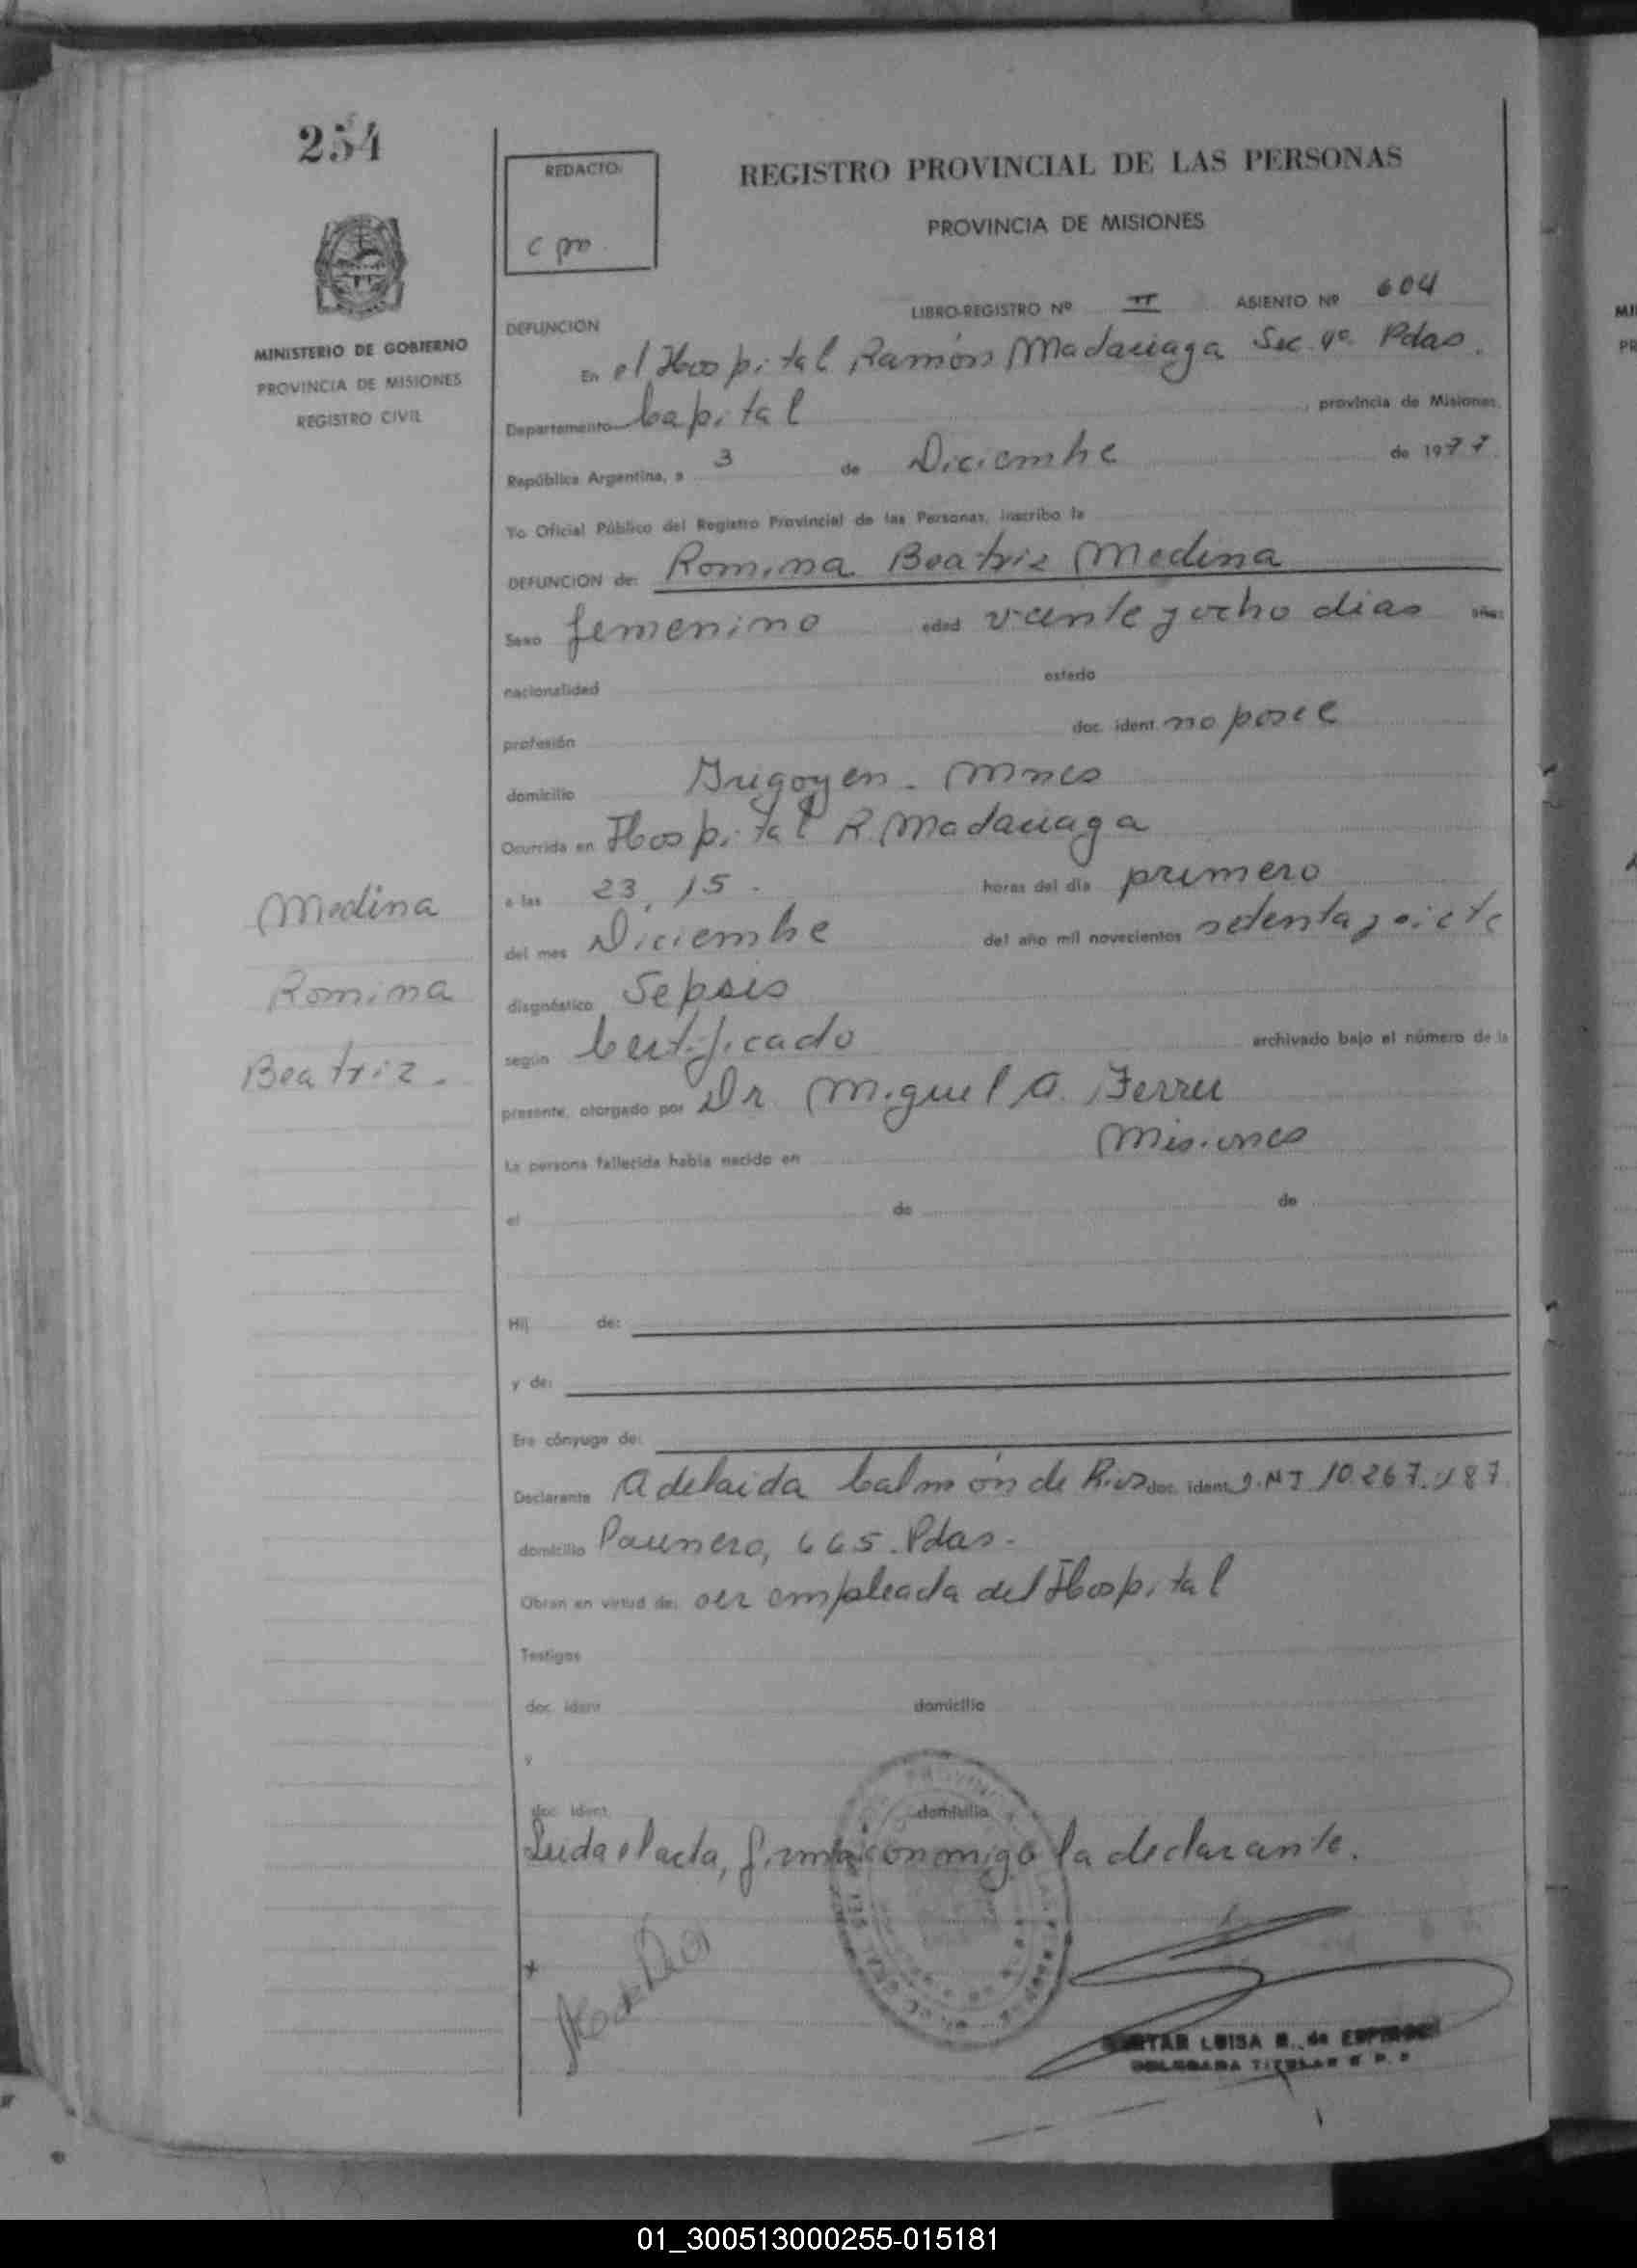 254
REDACTO:
c
REGISTRO PROVINCIAL DE LAS PERSONAS
PROVINCIA DE MISIONES
LIBRO-REGISTRO Nº II ASIENTO Nº 604
MINISTERIO DE GOBIERNO
PROVINCIA DE MISIONES
REGISTRO CIVIL
DEFUNCION
En el Hospital Ramón Madariaga Sec. 4ª Pdas.
Departamento Capital, provincia de Misiones,
República Argentina, a 3 de Diciembre de 1977.
Yo Oficial Público del Registro Provincial de las Personas, inscribo la
DEFUNCION de: Romina Beatriz Medina
Sexo femenino edad veinte y ocho dias años
nacionalidad estado
profesión doc. ident. no posee
domicilio Irigoyen - Mnes
Ocurrida en Hospital R. Madariaga
a las 23,15. horas del día primero
del mes Diciembre del año mil novecientos setenta y siete
diagnóstico Sepsis
según Certificado archivado bajo el número de la
presente, otorgado por Dr. Miguel A. Ferrer
La persona fallecida había nacido en Misiones
el de de
Medina
Romina
Beatriz.
Hij de:
y de:
Era cónyuge de:
Declarante Adelaida Calmón de Rios doc. ident. D.N.I 10.267.187
domicilio Paunero, 665. Pdas.
Obran en virtud de: ser empleada del Hospital
Testigos
doc. ident. domicilio
y
doc. ident. domicilio
Leida el acta, firma conmigo la declarante.
LUISA de
TITULAR
01_300513000255-015181